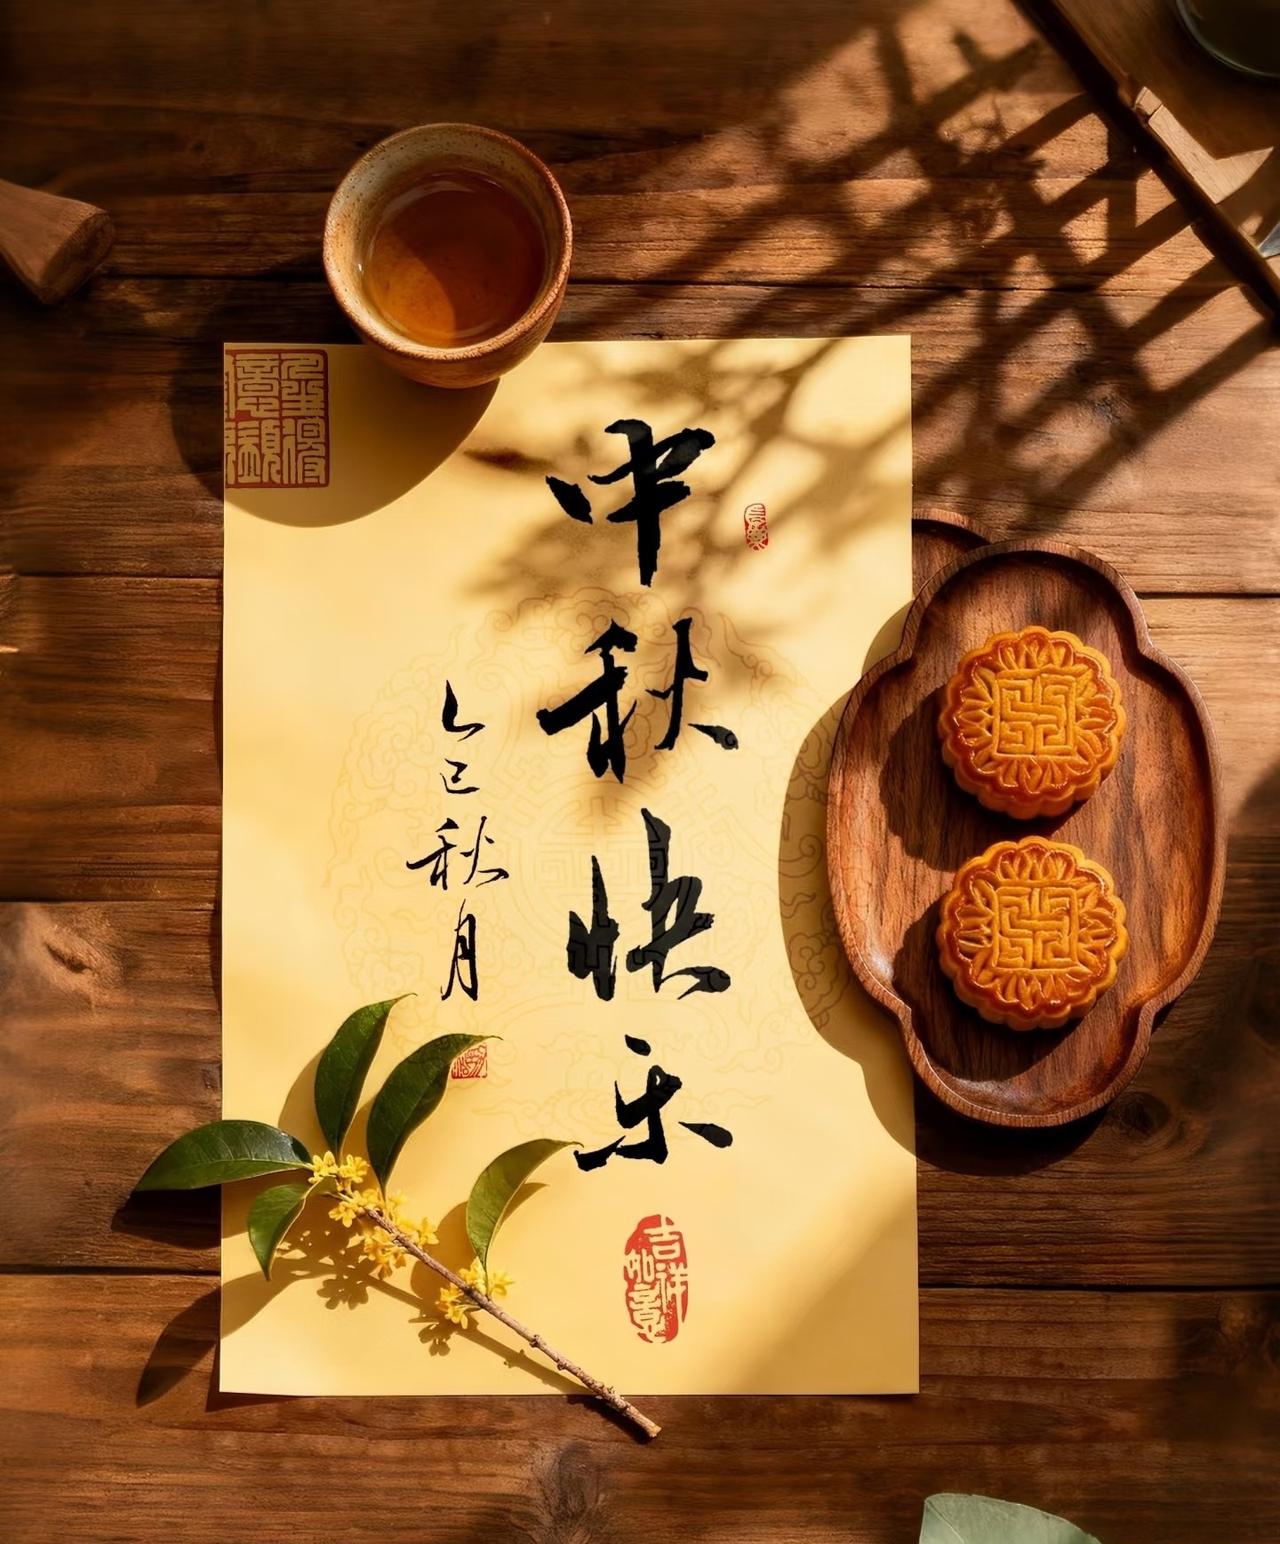 中秋快乐
吉祥如意
乙巳秋月